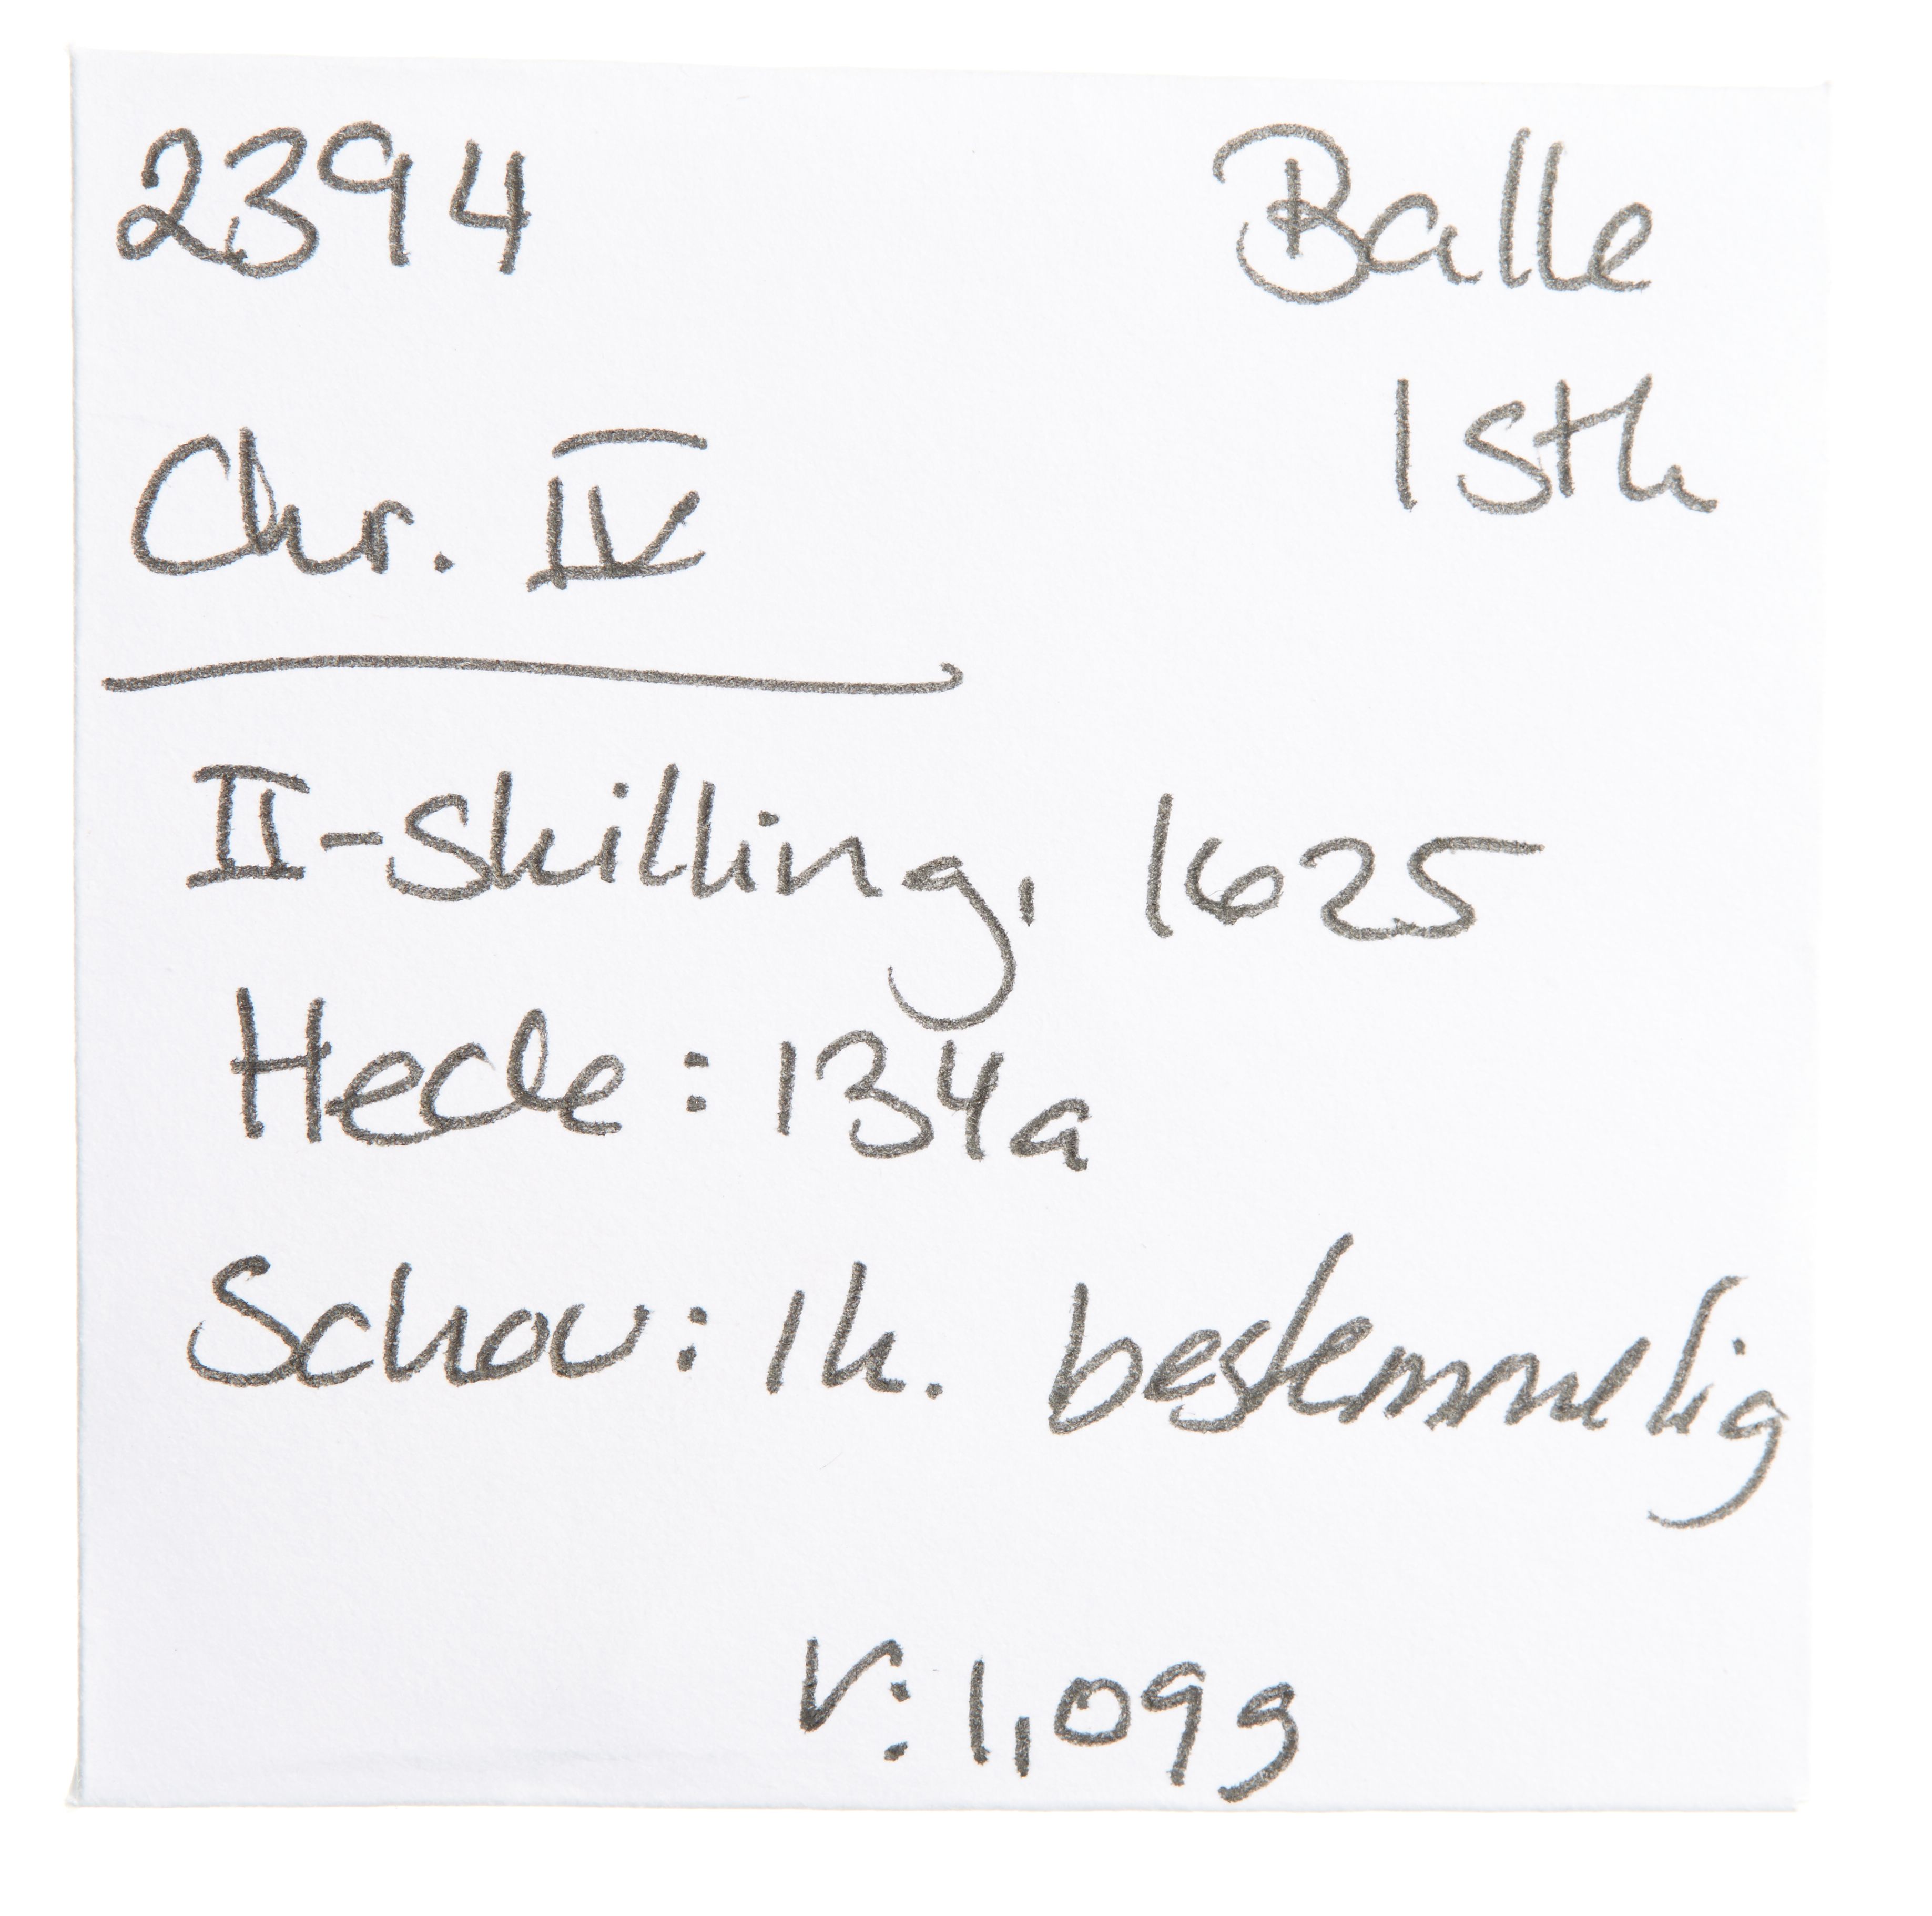 2394
Balle
1 stk
Chr. IV
II-Skilling, 1625
Hede: 134a
Schou: Ik. bestemmelig
V: 1,09g